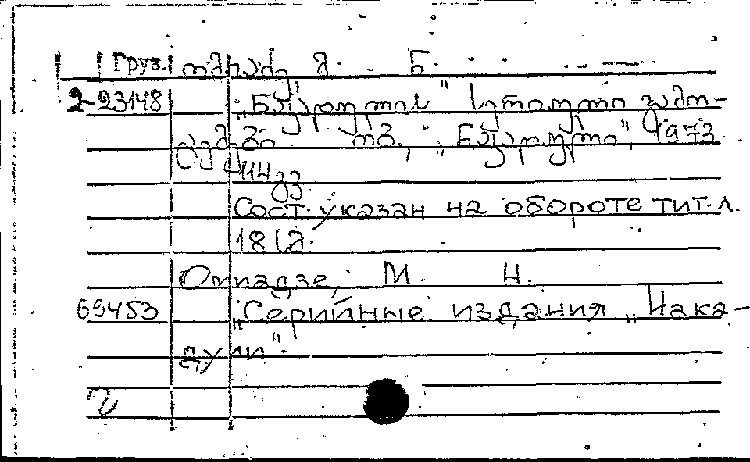 Груз. ომიაძე, მ. ნ.
2-23148 „ნაკადულის“ სერიული გამო-
ცემები თბ., „ნაკადული“, 1973
114 გვ.
Сост. указан на обороте тит. л.
18 (2
Омиадзе, М. Н.
69453 „Серийные издания „Нака-
дули“.